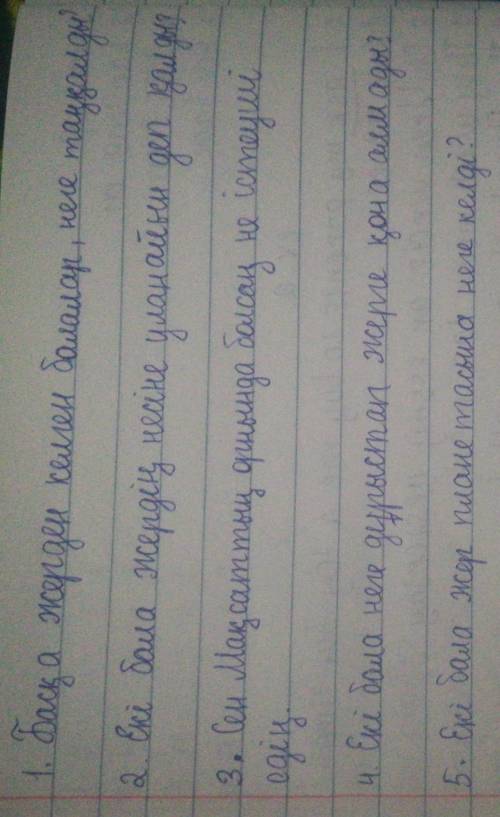 1. Басқа жерден келген балалар, неге таңқалды?
2. Екі бала жердің несіне ұланайын деп қалды?
3. Сен Мақсаттың орнында болсаң не істеуші
едің.
4. Екі бала неге дұрыстап жерге қона алмады?
5. Екі бала жер планетасына неге келді?